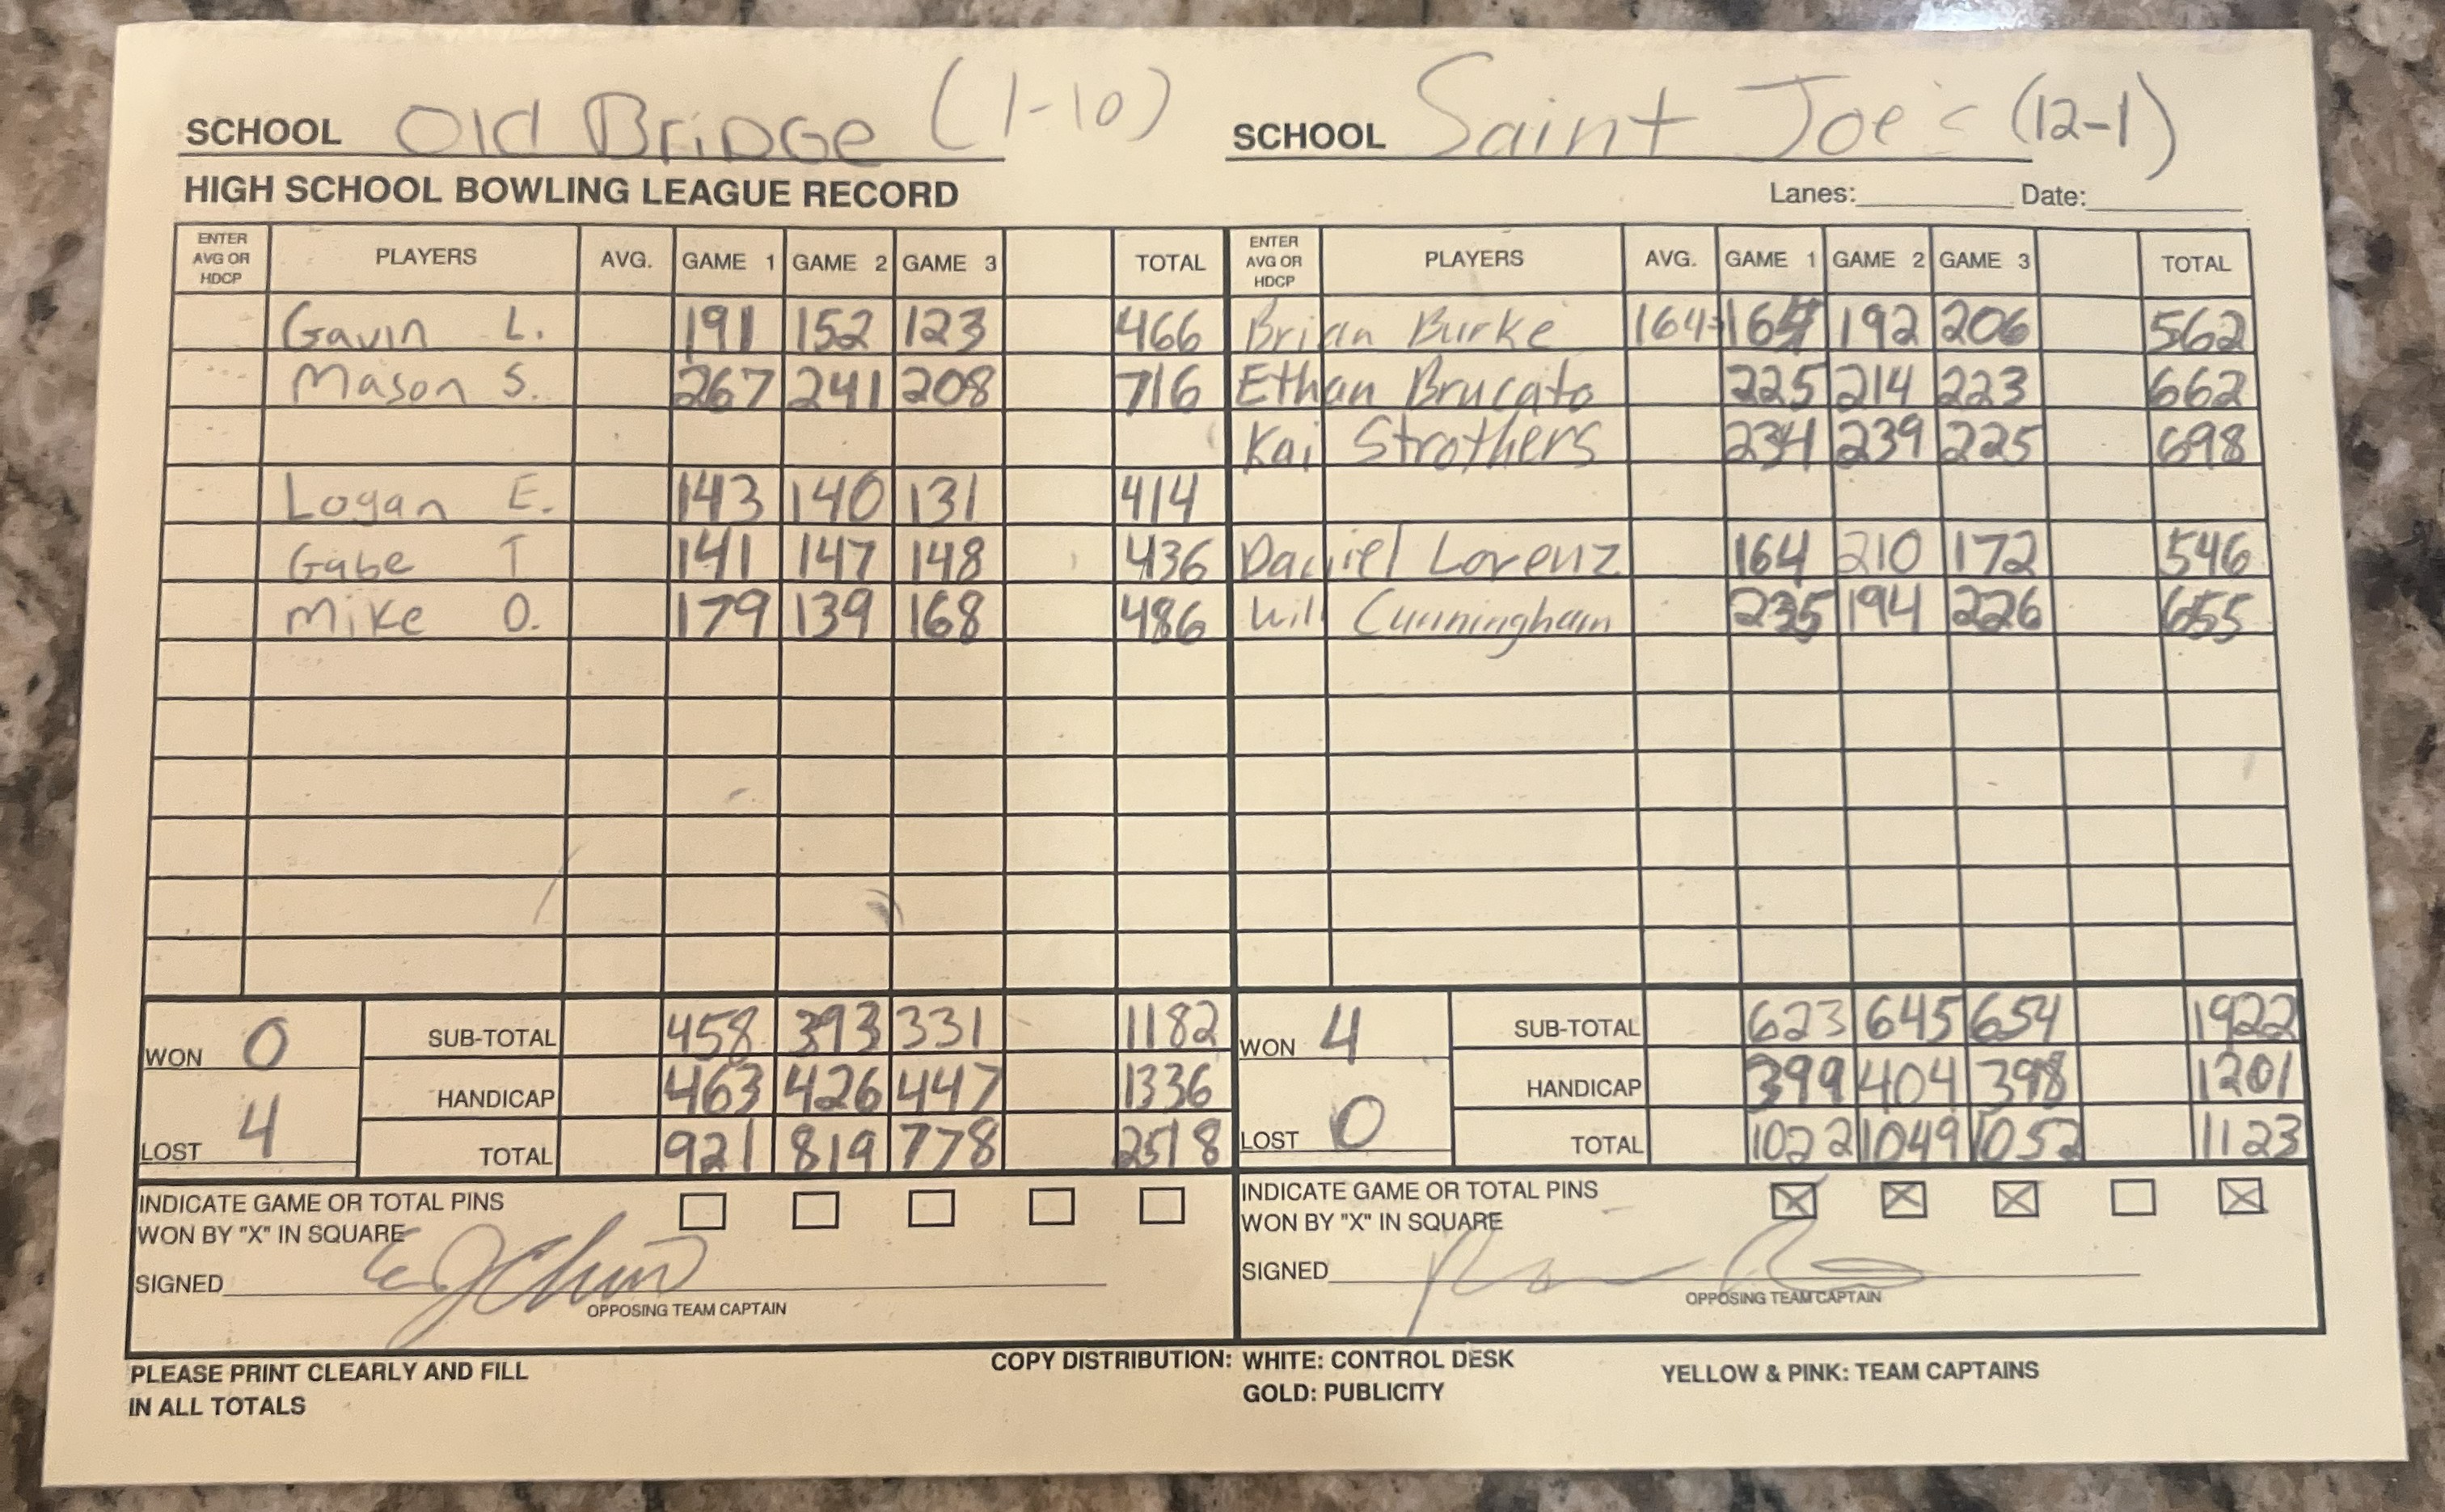 SCHOOL Old Bridge (1-10) SCHOOL Saint Joe's (12-1)
HIGH SCHOOL BOWLING LEAGUE RECORD Lanes: Date:
ENTER AVG OR HDCP PLAYERS AVG. GAME 1 GAME 2 GAME 3 TOTAL ENTER AVG OR HDCP PLAYERS AVG. GAME 1 GAME 2 GAME 3 TOTAL
Gavin L. 191 152 123 466 Brian Burke 164 164 192 206 562
Mason S. 267 241 208 716 Ethan Brucato 225 214 223 662
Kai Strothers 234 239 225 698
Logan E. 143 140 131 414
Gabe T 141 147 148 436 Daniel Lorenz 164 210 172 546
Mike O. 179 139 168 486 Will Cunningham 235 194 226 655
WON 0 SUB-TOTAL 458 393 331 1182 WON 4 SUB-TOTAL 623 645 654 1922
HANDICAP 463 426 447 1336 HANDICAP 399 404 398 1201
LOST 4 TOTAL 921 819 778 2518 LOST 0 TOTAL 1022 1049 1052 1123
INDICATE GAME OR TOTAL PINS INDICATE GAME OR TOTAL PINS
WON BY "X" IN SQUARE WON BY "X" IN SQUARE
SIGNED SIGNED
OPPOSING TEAM CAPTAIN OPPOSING TEAM CAPTAIN
PLEASE PRINT CLEARLY AND FILL COPY DISTRIBUTION: WHITE: CONTROL DESK YELLOW & PINK: TEAM CAPTAINS
IN ALL TOTALS GOLD: PUBLICITY